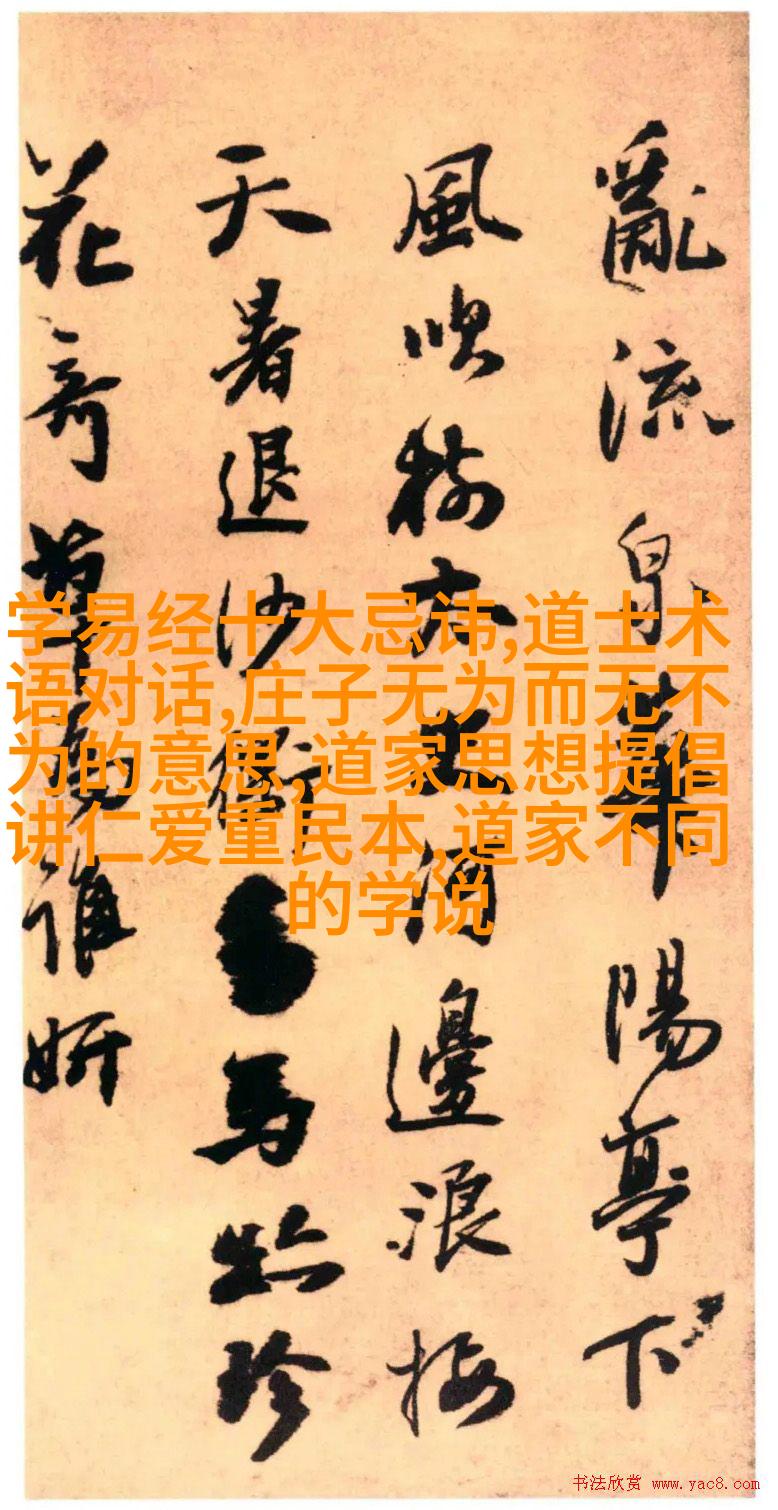 亂流華陽亭下
風吹酒邊浪接
天暑退沙馬珍
花奇草誰妍
学易经十大忌讳,道士术
语对话,庄子无为而无不
为的意思,道家思想提倡
讲仁爱重民本,道家不同
的学说
书法欣赏 www.yac8.com